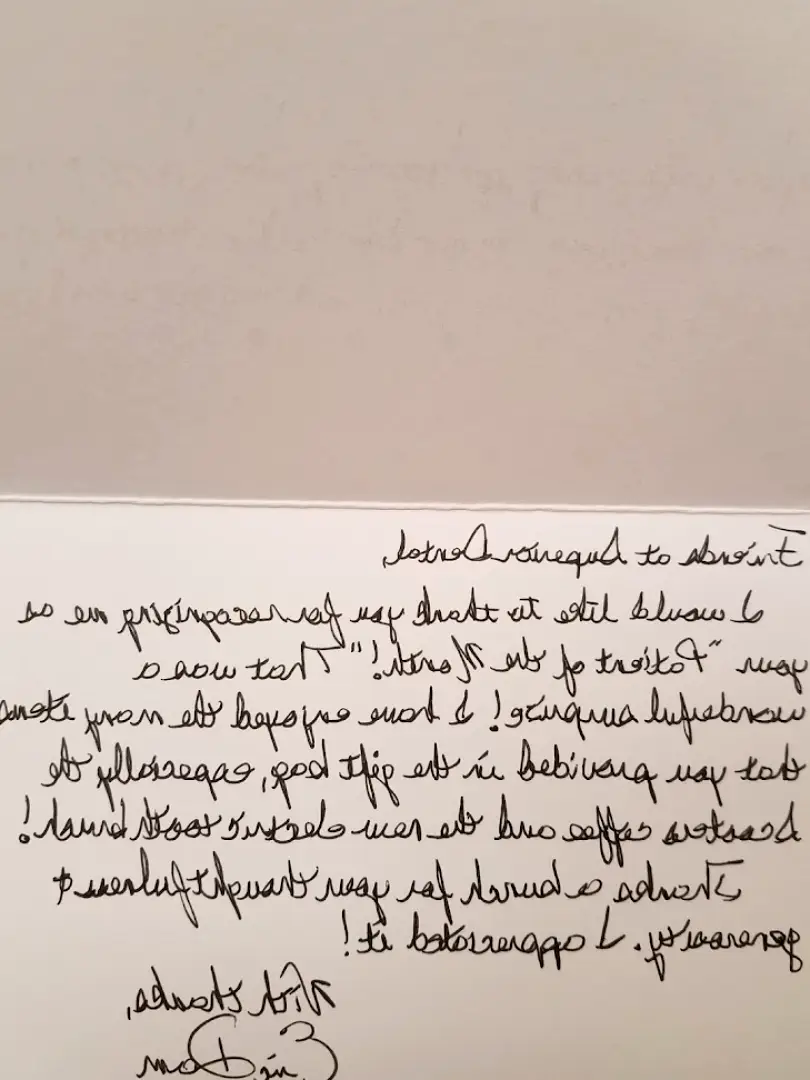 Friends at Superior Dental,
I would like to thank you for recognizing me as
your "Patient of the Month!" That was a
wonderful surprise! I have enjoyed the many items
that you provided in the gift bag, especially the
Scooters coffee and the new electric toothbrush!
Thanks a bunch for your thoughtfulness &
generosity. I appreciated it!
With thanks,